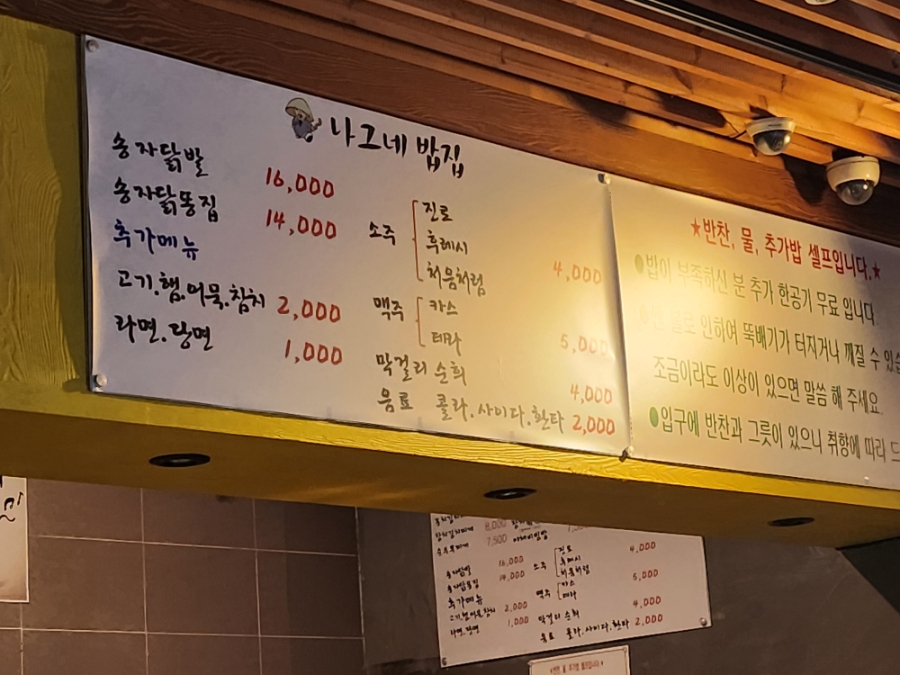 나그네 밥집
송자닭발 16,000
송자닭똥집 14,000
추가메뉴
고기.햄.어묵.참치 2,000
라면.당면 1,000
소주 진로
후레시
처음처럼 4,000
맥주 카스
테라 5,000
막걸리 순희 4,000
음료 콜라.사이다.환타 2,000
★반찬, 물, 추가밥 셀프입니다.★
●밥이 부족하신 분 추가 한공기 무료 입니다
인하여 뚝배기가 터지거나 깨질 수
조금이라도 이상이 있으면 말씀 해 주세요.
●입구에 반찬과 그릇이 있으니 취향에 따라
8,000
7,500
16,000
14,000
추가메뉴
2,000
라면.당면 1,000
소주 진로
후레시
처음처럼 4,000
맥주 카스
테라 5,000
막걸리 순희 4,000
음료 콜라.사이다.환타 2,000